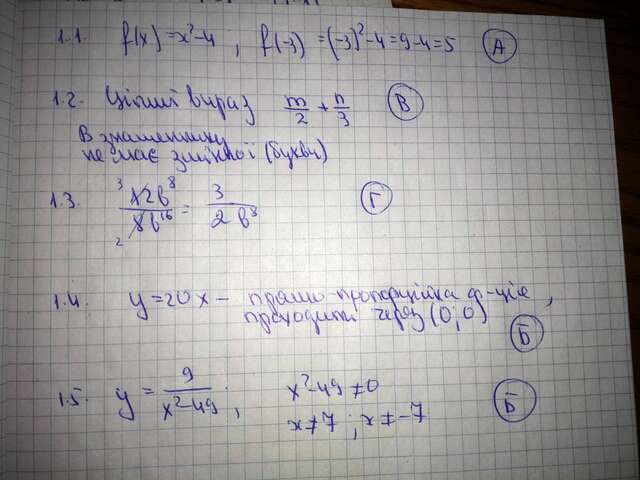 1.1. f(x) = x²-4, f(-3) = (-3)²-4 = 9-4 = 5 А
1.2. Цілий вираз m/2 + n/3 В
В знаменнику
не має змінної (букви)
1.3. 12b⁸/8b¹⁶ = 3/2b⁸ Г
3
2
1.4. y = 20x - прямо пропорційна ф-ція,
проходить через (0;0) Б
1.5. y = 9/x²-49, x²-49≠0
x≠7; x≠-7 Б